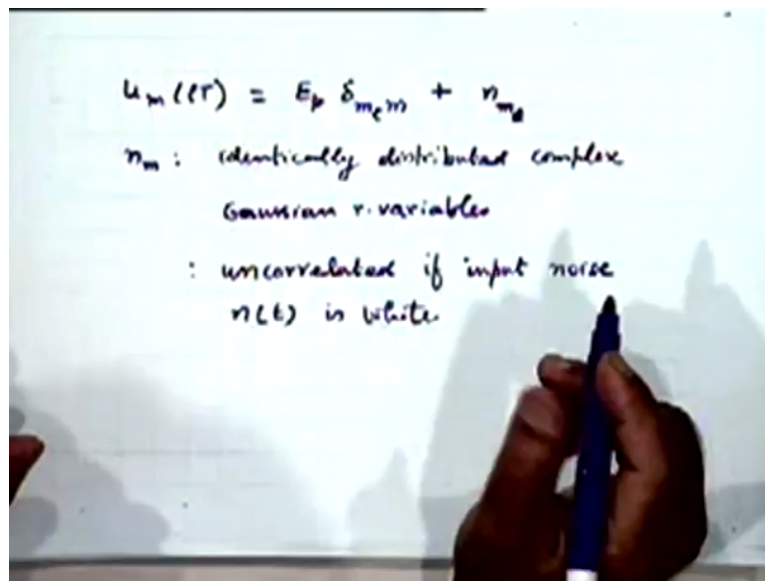 u_m(lT) = E_p δ_{m_l m} + n_m
n_m : identically distributed complex
Gaussian r. variables
: uncorrelated if input noise
n(t) is white.